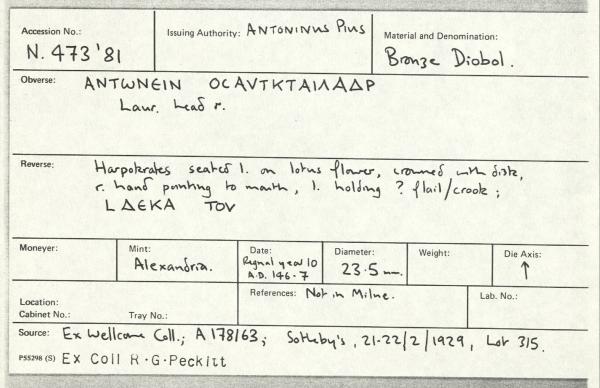 Accession No.: Issuing Authority: ANTONINUS PIUS Material and Denomination:
N. 473 '81 Bronze Diobol.
Obverse: ΑΝΤΩΝΕΙΝ ΟϹΑVΤΚΤΑΙΛΑΔΡ
Laur. head r.
Reverse: Harpokrates seated l. on lotus flower, crowned with disk,
r. hand pointing to mouth, l. holding ? flail/crook ;
L ΔΕΚΑ ΤΟV
Moneyer: Mint: Date: Diameter: Weight: Die Axis:
Alexandria. Regnal year 10 23.5 mm. ↑
A.D. 146-7
Location: References: Not in Milne. Lab. No.:
Cabinet No.: Tray No.:
Source: Ex Wellcome Coll.; A178/63; Sotheby's, 21-22/2/1929, Lot 315.
P55298 (S) Ex Coll R.G. Peckitt